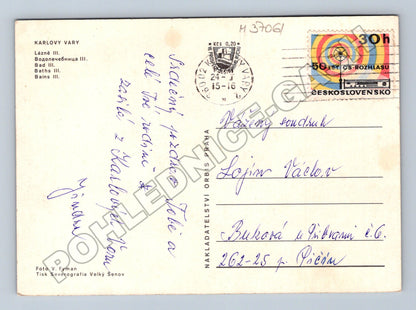 M 37061
KARLOVY VARY
Lázně III.
Водолечебница III.
Bad III.
Baths III.
Bains III.
Srdečný pozdrav Tobě a
celé Tvé rodině
zasílá z Karlových Varů
Kčs 0,20
15-16
30h
50 LET ČS. ROZHLASU
ČESKOSLOVENSKO
Vážený soudruh
Lojín Václav
Buková u Příbrami č. 6
262-25 p. Pičín
NAKLADATELSTVÍ ORBIS PRAHA
Foto V. Fyman
Tisk Severografia Velký Šenov
POHLEDNICE-CZ.COM